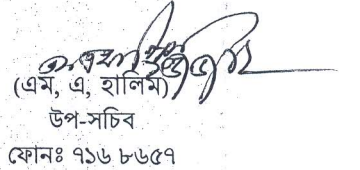 (এম, এ, হালিম)
উপ-সচিব
ফোনঃ ৭১৬ ৮৬৫৭